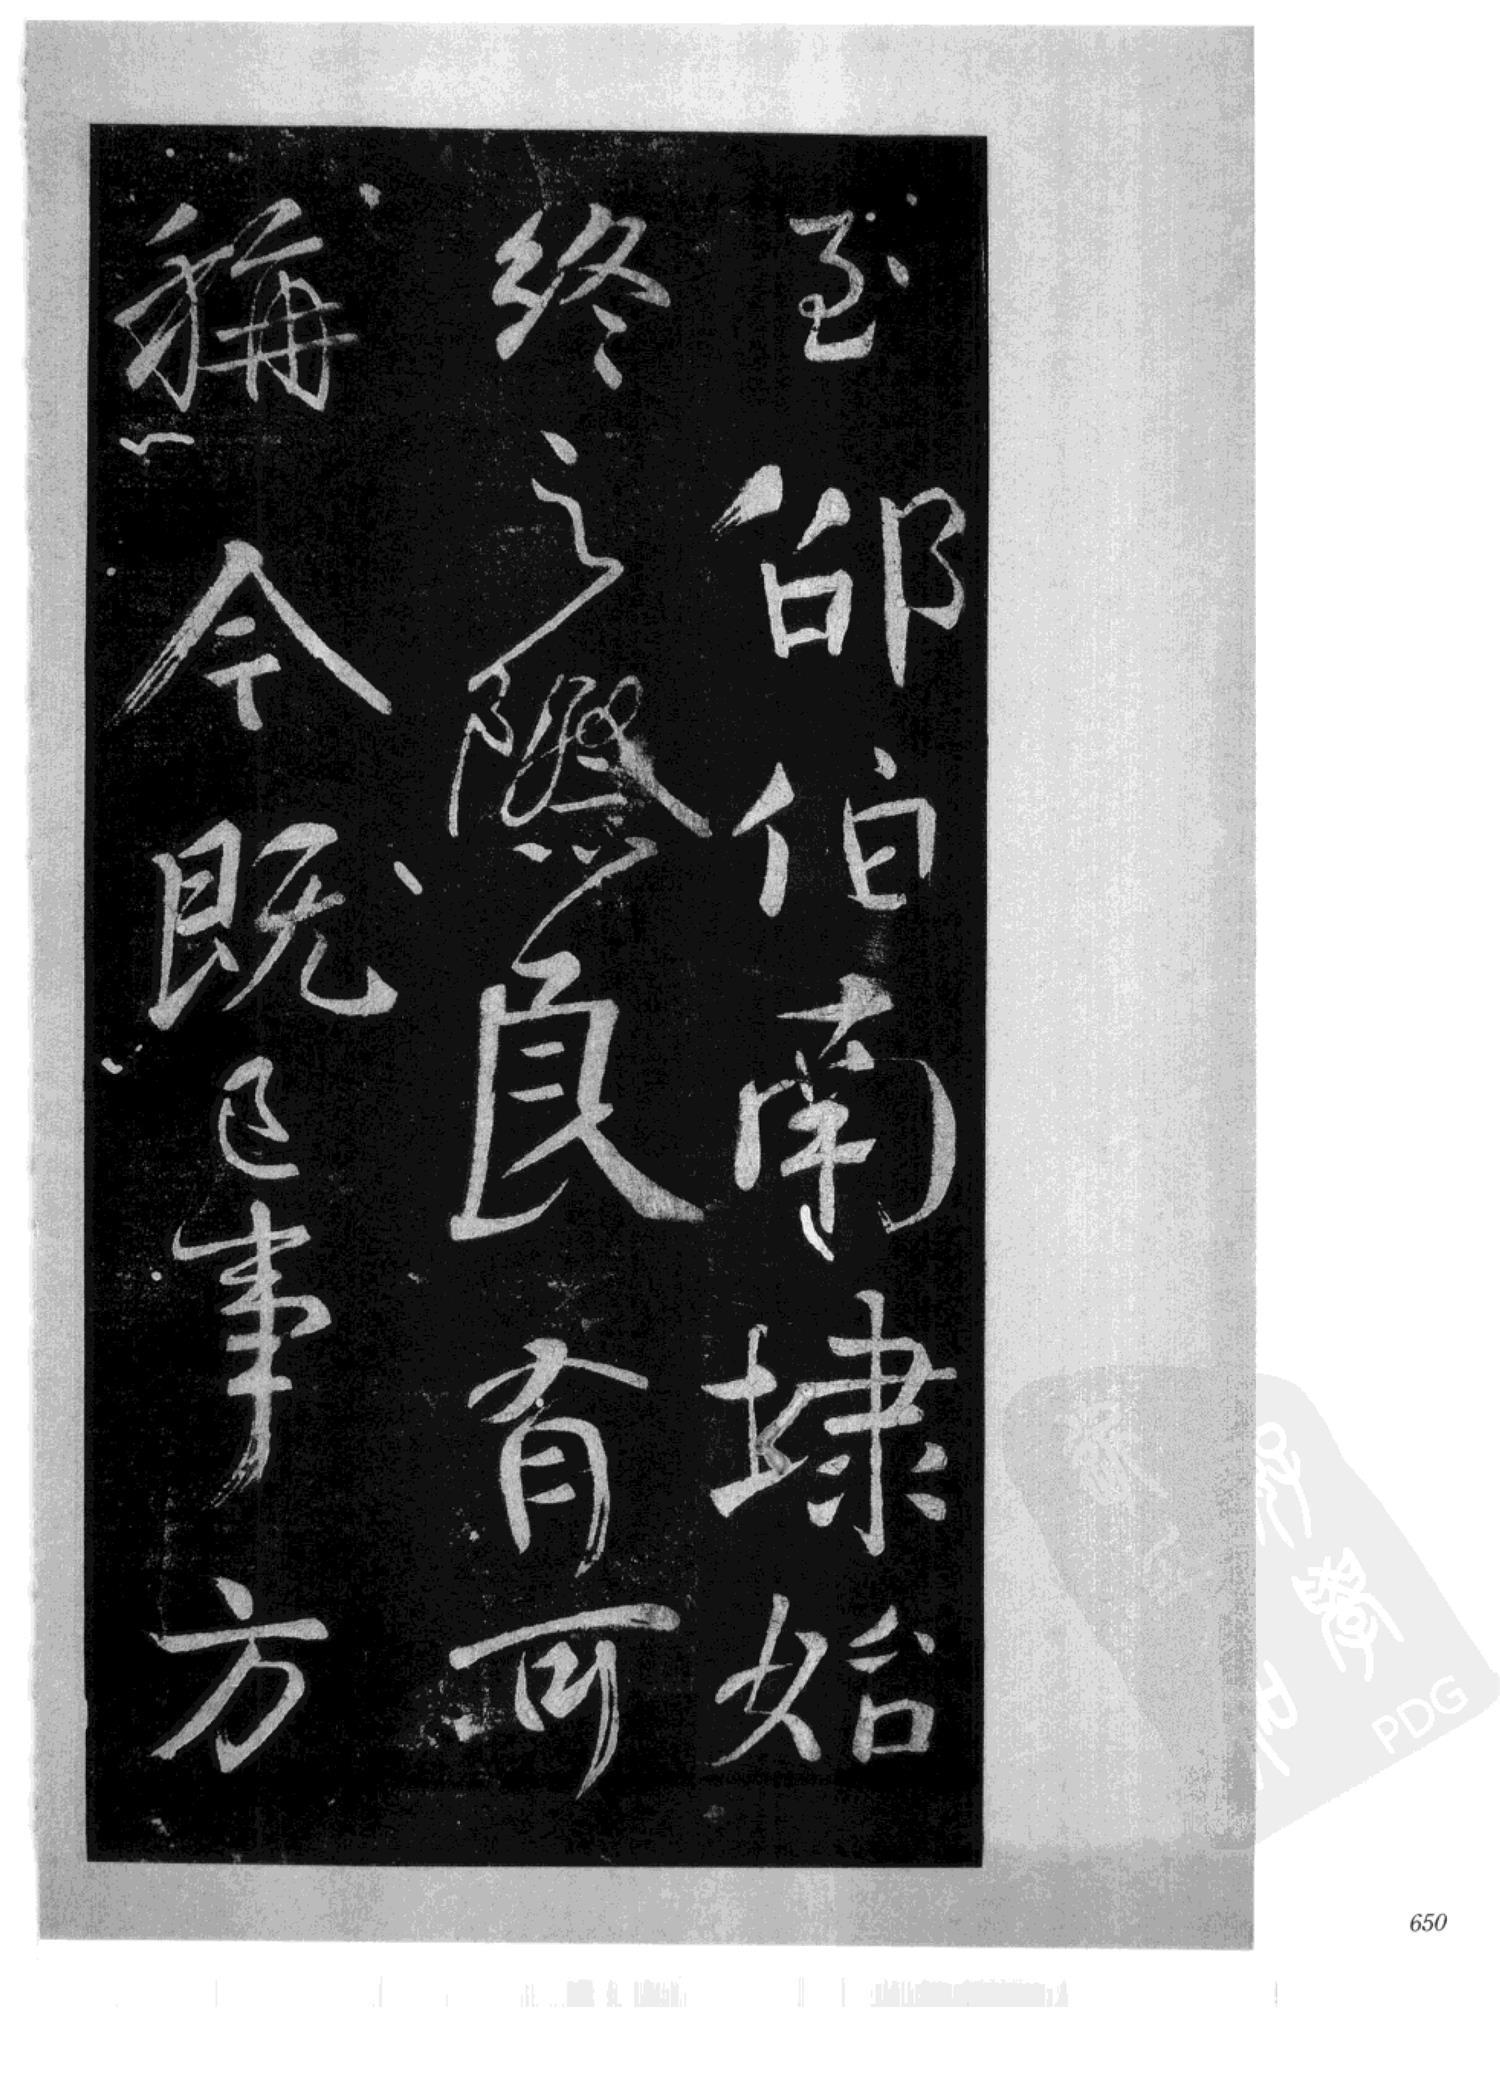 至邵伯南埭始
終之隱良有可
稱今既已事方
650
PDG